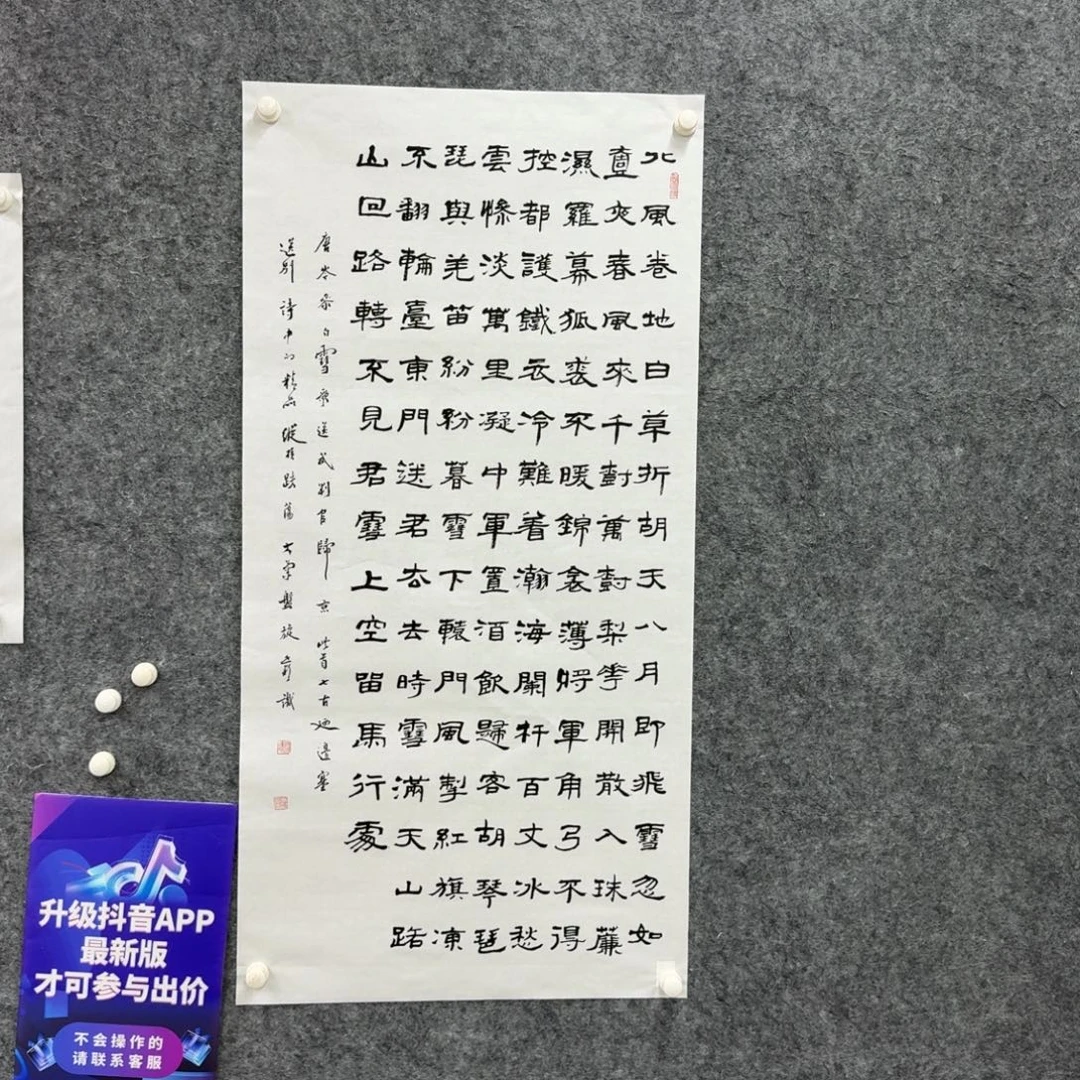 北風卷地白草折胡天八月即飛雪忽如
壹夾春風來千尌萬尌梨華開散入珠簾
濕羅幕狐裘不暖錦衾薄將軍角弓不得
控都護鐵衣冷難着瀚海闌杆百丈冰愁
雲慘淡萬里凝中軍置酒飲歸客胡琴琶
琵與羌笛紛紛暮雪下轅門風掣紅旗凍
不翻輪臺東門送君去去時雪滿天山路
山回路轉不見君雪上空留馬行處
唐岑參白雪歌送武判官歸京 此首七古迺邊塞
送別詩中的精品縱跌蕩大氣盤旋識
升级抖音APP
最新版
才可参与出价
不会操作的
请联系客服